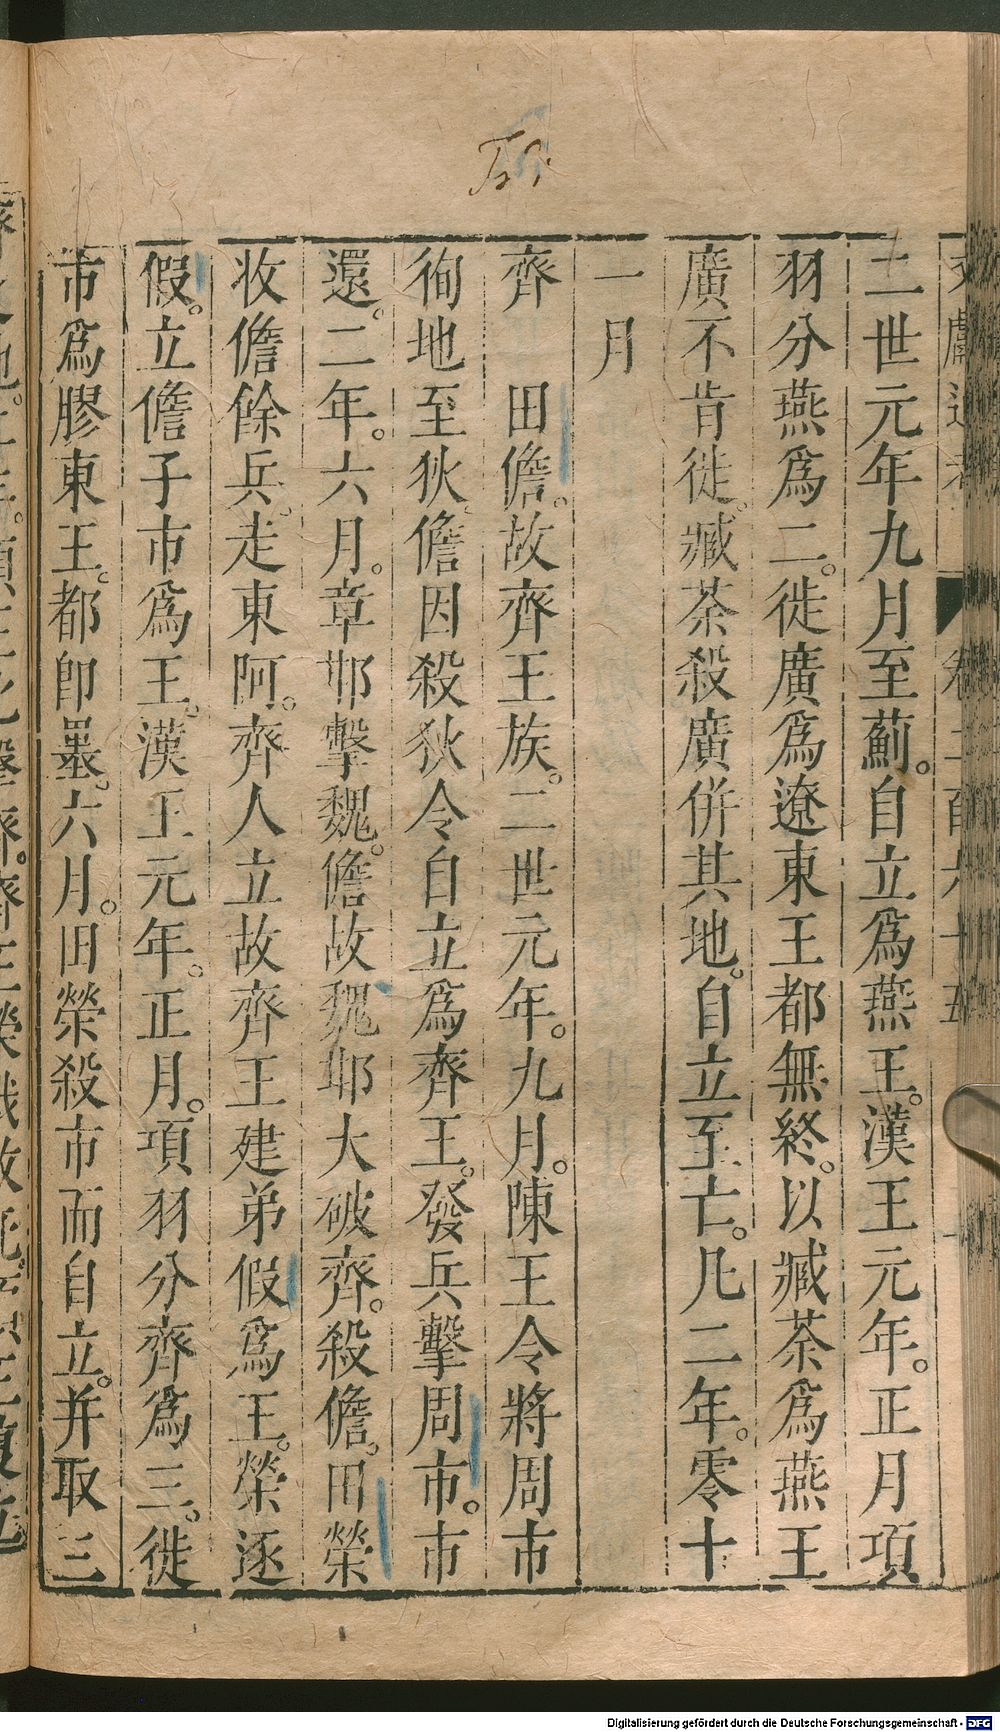 二世元年九月至薊。自立爲燕王。漢王元年。正月項
羽分燕爲二。徙廣爲遼東王都無終。以臧荼爲燕王
廣不肯徙。臧荼殺廣併其地。自立至亡。凡二年。零十
一月
齊　田儋。故齊王族。二世元年。九月。陳王令將周市
徇地至狄。儋因殺狄令自立爲齊王。發兵擊周市。市
還。二年。六月。章邯擊魏。儋故魏邯大破齊。殺儋。田榮
收儋餘兵。走東阿。齊人立故齊王建弟假爲王。榮逐
假。立儋子市爲王。漢王元年。正月。項羽分齊爲三。徙
市爲膠東王。都卽墨。六月。田榮殺市而自立。并取三
Digitalisierung gefördert durch die Deutsche Forschungsgemeinschaft - DFG